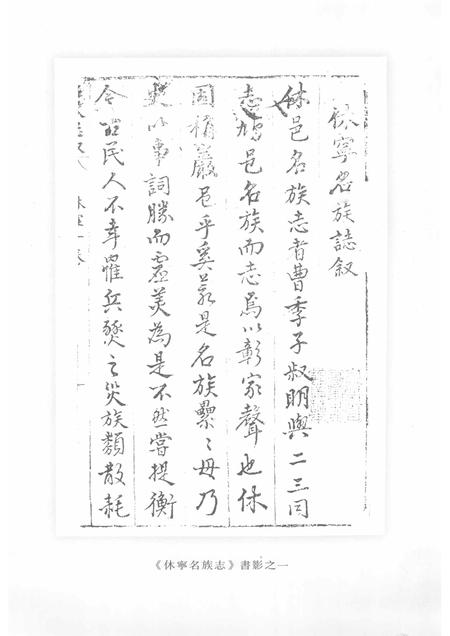 休寧名族誌叙
休邑名族志者曹季子叔明與二三同
志鳩邑名族而志焉以彰家聲也休
固稱巖邑乎奚是名族纍纍毋乃
史以事詞勝而虛美為是不然嘗提衡
今昔民人不幸罹兵燹之災族類散耗
《休寧名族志》書影之一